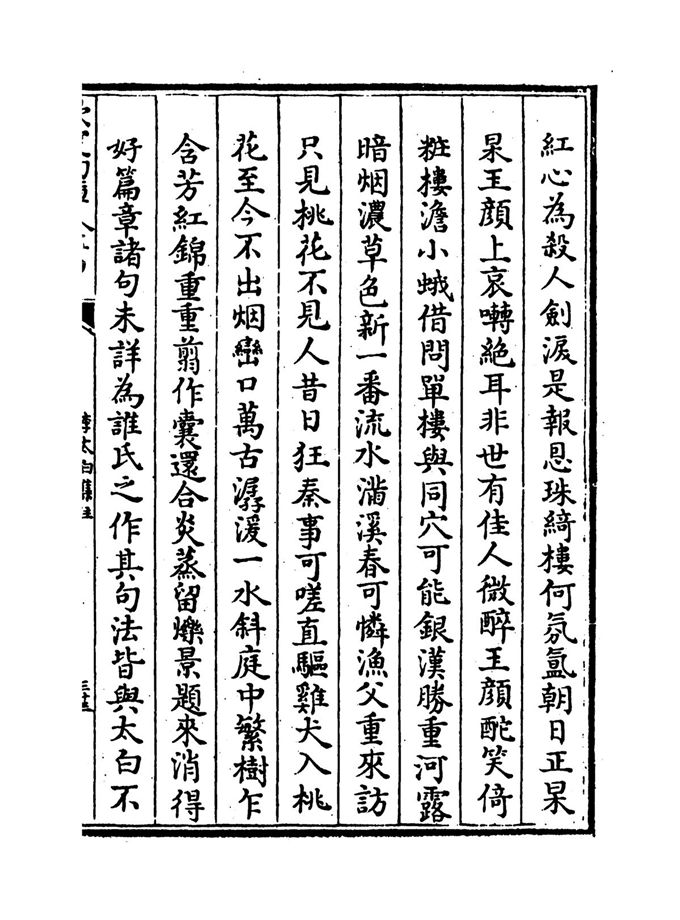 紅心為殺人劍淚是報恩珠綺樓何氛氳朝日正杲
杲玉顔上哀囀絶耳非世有佳人微醉玉顔酡笑倚
粧樓澹小蛾借問單樓與同穴可能銀漢勝重河露
暗烟濃草色新一番流水滿溪春可憐漁父重來訪
只見桃花不見人昔日狂秦事可嗟直驅雞犬入桃
花至今不出烟巒口萬古潺湲一水斜庭中繁樹乍
含芳紅錦重重翦作囊還合炎蒸留爍景題來消得
好篇章諸句未詳為誰氏之作其句法皆與太白不
李太白集注
三十三